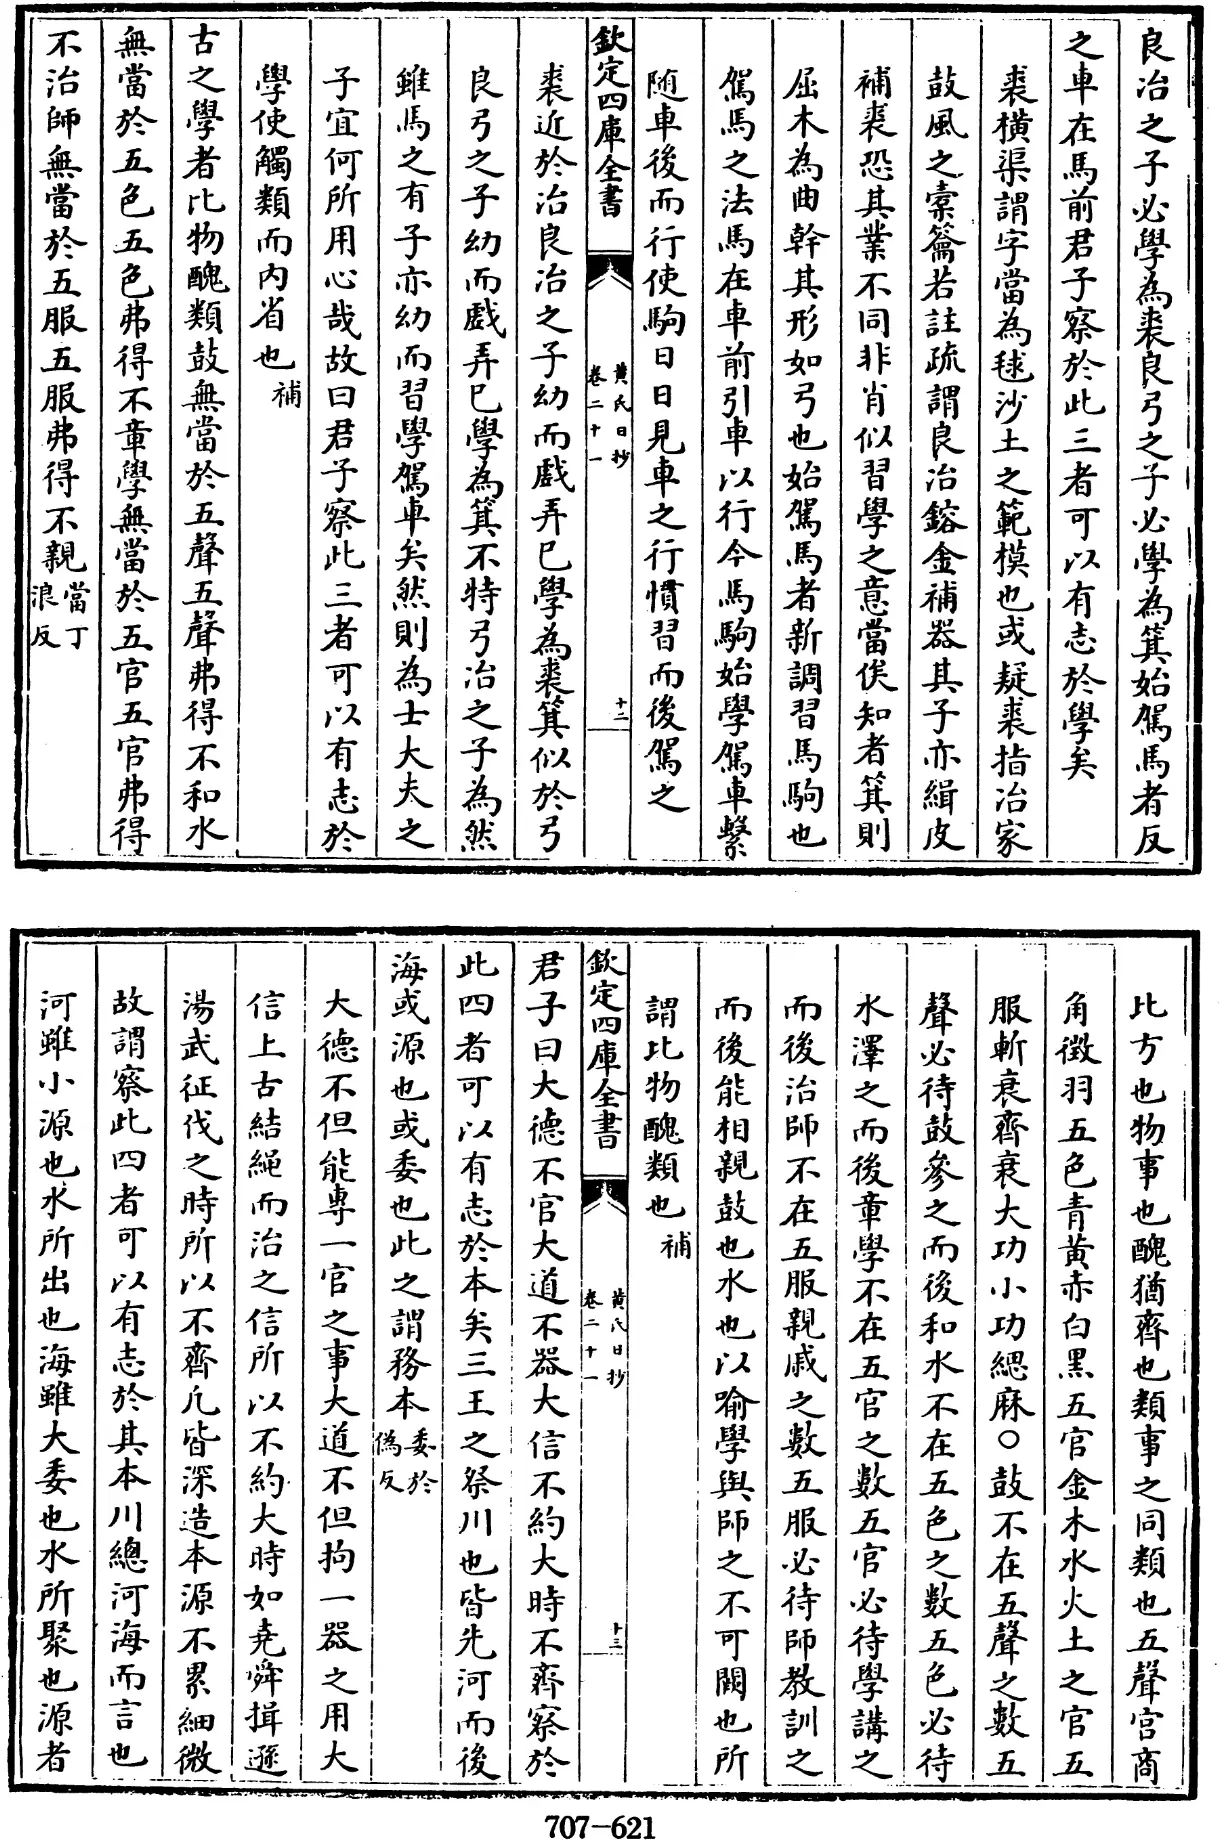 良冶之子必學為裘良弓之子必學為箕始駕馬者反
之車在馬前君子察於此三者可以有志於學矣
裘橫渠謂字當為毬沙土之範模也或疑裘指冶家
鼓風之橐籥若註疏謂良冶鎔金補器其子亦緝皮
補裘恐其業不同非肖似習學之意當俟知者箕則
屈木為曲幹其形如弓也始駕馬者新調習馬駒也
駕馬之法馬在車前引車以行今馬駒始學駕車繫
随車後而行使駒日日見車之行慣習而後駕之
欽定四庫全書
黄氏日抄
卷二十一
十二
裘近於冶良冶之子幼而戲弄已學為裘箕似於弓
良弓之子幼而戲弄已學為箕不特弓冶之子為然
雖馬之有子亦幼而習學駕車矣然則為士大夫之
子宜何所用心哉故曰君子察此三者可以有志於
學使觸類而内省也補
古之學者比物醜類鼓無當於五聲五聲弗得不和水
無當於五色五色弗得不章學無當於五官五官弗得
不治師無當於五服五服弗得不親當丁浪反
比方也物事也醜猶齊也類事之同類也五聲宫商
角徵羽五色青黄赤白黑五官金木水火土之官五
服斬衰齊衰大功小功緦麻○鼓不在五聲之數五
聲必待鼓參之而後和水不在五色之數五色必待
水澤之而後章學不在五官之數五官必待學講之
而後治師不在五服親戚之數五服必待師教訓之
而後能相親鼓也水也以喻學與師之不可闕也所
謂比物醜類也補
欽定四庫全書
黄氏日抄
卷二十一
十三
君子曰大德不官大道不器大信不約大時不齊察於
此四者可以有志於本矣三王之祭川也皆先河而後
海或源也或委也此之謂務本委於偽反
大德不但能專一官之事大道不但拘一器之用大
信上古結繩而治之信所以不約大時如堯舜揖遜
湯武征伐之時所以不齊凡皆深造本源不累細微
故謂察此四者可以有志於其本川總河海而言也
河雖小源也水所出也海雖大委也水所聚也源者
707-621